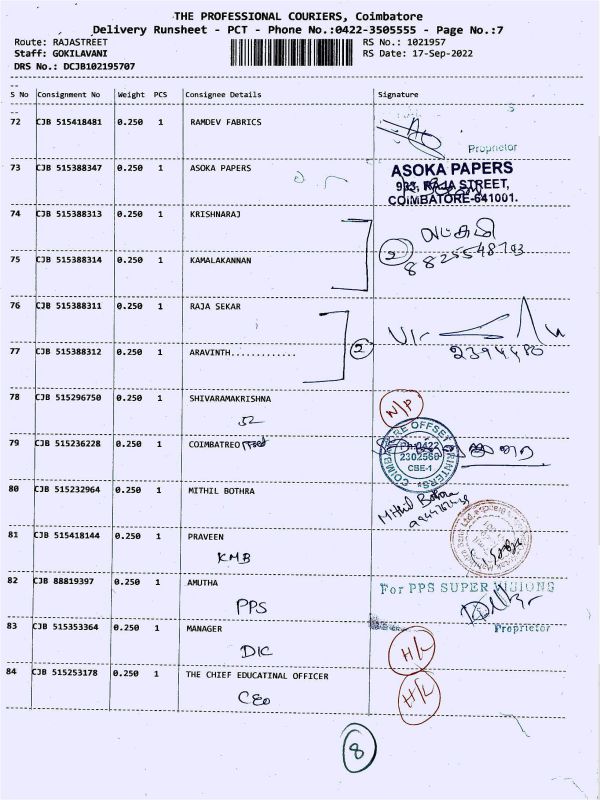 THE PROFESSIONAL COURIERS, Coimbatore
Delivery Runsheet - PCT - Phone No.:0422-3505555 - Page No.:7
Route: RAJASTREET
RS No.: 1021957
Staff: GOKILAVANI
RS Date: 17-Sep-2022
DRS No.: DCJB102195707
S No Consignment No Weight PCS Consignee Details Signature
72 CJB 515418481 0.250 1 RAMDEV FABRICS
Proprietor
73 CJB 515388347 0.250 1 ASOKA PAPERS
ASOKA PAPERS
993, RAJA STREET,
COIMBATORE-641001.
74 CJB 515388313 0.250 1 KRISHNARAJ
2
75 CJB 515388314 0.250 1 KAMALAKANNAN
76 CJB 515388311 0.250 1 RAJA SEKAR
77 CJB 515388312 0.250 1 ARAVINTH.............
2
2394480
78 CJB 515296750 0.250 1 SHIVARAMAKRISHNA
52
N/P
79 CJB 515236228 0.250 1 COIMBATREO
COIMBATORE OFFSET PRINTERS
Ph:0422
2302560
CBE-1
80 CJB 515232964 0.250 1 MITHIL BOTHRA
Mithil Bothra
81 CJB 515418144 0.250 1 PRAVEEN
KMB
82 CJB 88819397 0.250 1 AMUTHA
PPS
For PPS SUPER VISIONS
Proprietor
83 CJB 515353364 0.250 1 MANAGER
DIC
H/L
84 CJB 515253178 0.250 1 THE CHIEF EDUCATINAL OFFICER
CEO
H/L
8